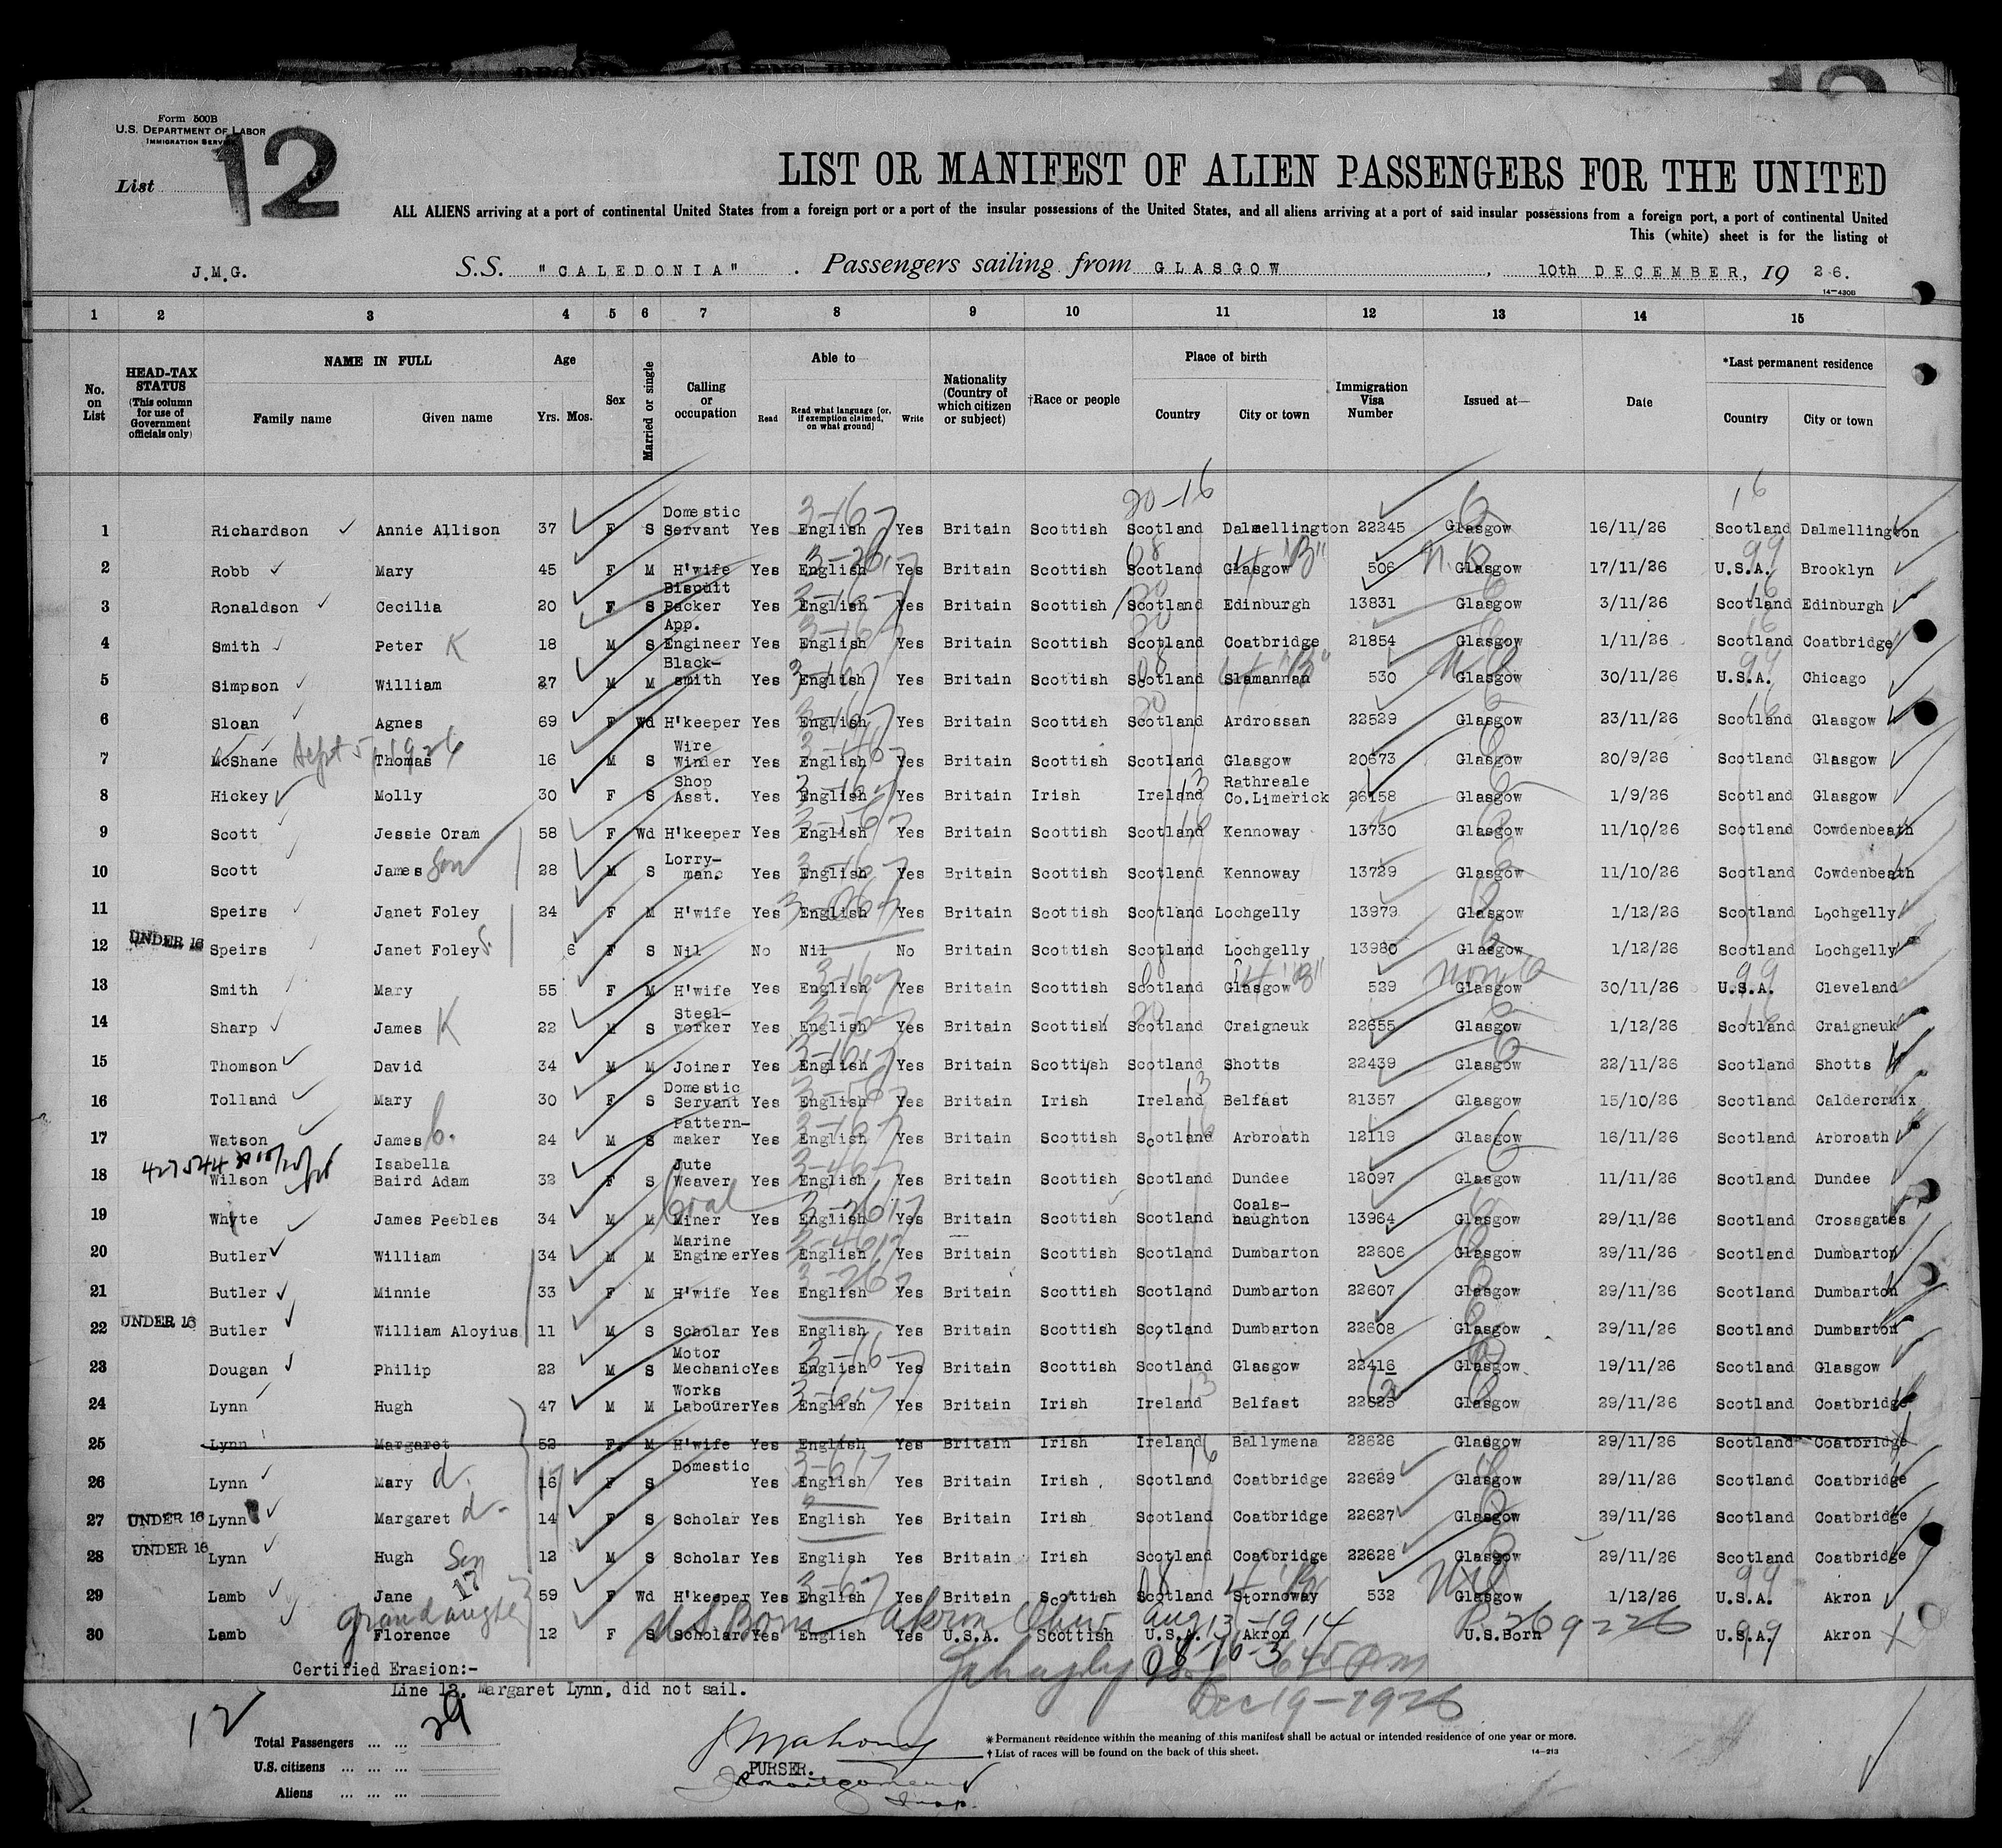 Form 500B
U.S. DEPARTMENT OF LABOR
IMMIGRATION SERVICE
List 12
LIST OR MANIFEST OF ALIEN PASSENGERS FOR THE UNITED
ALL ALIENS arriving at a port of continental United States from a foreign port or a port of the insular possessions of the United States, and all aliens arriving at a port of said insular possessions from a foreign port, a port of continental United
This (white) sheet is for the listing of
J.M.G. S.S. "CALEDONIA" . Passengers sailing from GLASGOW , 10th DECEMBER, 19 26.
14-430B
1 2 3 4 5 6 7 8 9 10 11 12 13 14 15
No. on List HEAD-TAX STATUS (This column for use of Government officials only) NAME IN FULL Family name Given name Age Yrs. Mos. Sex Married or single Calling or occupation Able to Read Read what language [or, if exemption claimed, on what ground] Write Nationality (Country of which citizen or subject) †Race or people Place of birth Country City or town Immigration Visa Number Issued at— Date *Last permanent residence Country City or town
20-16 16
1 Richardson Annie Allison 37 F S Domestic Servant Yes English Yes Britain Scottish Scotland Dalmellington 22245 Glasgow 16/11/26 Scotland Dalmellington
2 Robb Mary 45 F M H'wife Yes English Yes Britain Scottish Scotland Glasgow 506 Glasgow 17/11/26 U.S.A. Brooklyn
3 Ronaldson Cecilia 20 F S Biscuit Packer Yes English Yes Britain Scottish Scotland Edinburgh 13831 Glasgow 3/11/26 Scotland Edinburgh
4 Smith Peter K 18 M S App. Engineer Yes English Yes Britain Scottish Scotland Coatbridge 21854 Glasgow 1/11/26 Scotland Coatbridge
5 Simpson William 27 M M Black-smith Yes English Yes Britain Scottish Scotland Slamannan 530 Glasgow 30/11/26 U.S.A. Chicago
6 Sloan Agnes 69 F Wd H'keeper Yes English Yes Britain Scottish Scotland Ardrossan 22529 Glasgow 23/11/26 Scotland Glasgow
7 McShane Sept 5, 1926 Thomas 16 M S Wire Winder Yes English Yes Britain Scottish Scotland Glasgow 20673 Glasgow 20/9/26 Scotland Glasgow
8 Hickey Molly 30 F S Shop Asst. Yes English Yes Britain Irish Ireland Rathreale Co.Limerick 26158 Glasgow 1/9/26 Scotland Glasgow
9 Scott Jessie Oram 58 F Wd H'keeper Yes English Yes Britain Scottish Scotland Kennoway 13730 Glasgow 11/10/26 Scotland Cowdenbeath
10 Scott James Son 28 M S Lorry-man. Yes English Yes Britain Scottish Scotland Kennoway 13729 Glasgow 11/10/26 Scotland Cowdenbeath
11 Speirs Janet Foley 24 F M H'wife Yes English Yes Britain Scottish Scotland Lochgelly 13979 Glasgow 1/12/26 Scotland Lochgelly
12 UNDER 16 Speirs Janet Foley S. 6 F S Nil No Nil No Britain Scottish Scotland Lochgelly 13980 Glasgow 1/12/26 Scotland Lochgelly
13 Smith Mary 55 F M H'wife Yes English Yes Britain Scottish Scotland Glasgow 529 Glasgow 30/11/26 U.S.A. Cleveland
14 Sharp James K 22 M S Steel-worker Yes English Yes Britain Scottish Scotland Craigneuk 22655 Glasgow 1/12/26 Scotland Craigneuk
15 Thomson David 34 M M Joiner Yes English Yes Britain Scottish Scotland Shotts 22439 Glasgow 22/11/26 Scotland Shotts
16 Tolland Mary 30 F S Domestic Servant Yes English Yes Britain Irish Ireland Belfast 21357 Glasgow 15/10/26 Scotland Caldercruix
17 Watson James 24 M S Pattern-maker Yes English Yes Britain Scottish Scotland Arbroath 12119 Glasgow 16/11/26 Scotland Arbroath
18 Wilson Isabella Baird Adam 32 F S Jute Weaver Yes English Yes Britain Scottish Scotland Dundee 12097 Glasgow 11/11/26 Scotland Dundee
19 Whyte James Peebles 34 M M Coal Miner Yes English Yes Britain Scottish Scotland Coals-naughton 13964 Glasgow 29/11/26 Scotland Crossgates
20 Butler William 34 M M Marine Engineer Yes English Yes Britain Scottish Scotland Dumbarton 22606 Glasgow 29/11/26 Scotland Dumbarton
21 Butler Minnie 33 F M H'wife Yes English Yes Britain Scottish Scotland Dumbarton 22607 Glasgow 29/11/26 Scotland Dumbarton
22 UNDER 16 Butler William Aloyius 11 M S Scholar Yes English Yes Britain Scottish Scotland Dumbarton 22608 Glasgow 29/11/26 Scotland Dumbarton
23 Dougan Philip 22 M S Motor Mechanic Yes English Yes Britain Scottish Scotland Glasgow 22416 Glasgow 19/11/26 Scotland Glasgow
24 Lynn Hugh 47 M M Works Labourer Yes English Yes Britain Irish Ireland Belfast 22625 Glasgow 29/11/26 Scotland Coatbridge
25 Lynn Margaret 52 F M H'wife Yes English Yes Britain Irish Ireland Ballymena 22626 Glasgow 29/11/26 Scotland Coatbridge
26 Lynn Mary d. 16 F S Domestic Yes English Yes Britain Irish Scotland Coatbridge 22629 Glasgow 29/11/26 Scotland Coatbridge
27 UNDER 16 Lynn Margaret d. 14 F S Scholar Yes English Yes Britain Irish Scotland Coatbridge 22627 Glasgow 29/11/26 Scotland Coatbridge
28 UNDER 16 Lynn Hugh Son 12 M S Scholar Yes English Yes Britain Irish Scotland Coatbridge 22628 Glasgow 29/11/26 Scotland Coatbridge
29 Lamb Jane 17 59 F Wd H'keeper Yes English Yes Britain Scottish Scotland Stornoway 532 Glasgow 1/12/26 U.S.A. Akron
granddaughter US Born Akron Ohio Aug 13-1914
30 Lamb Florence 12 F S Scholar Yes English Yes U.S.A. Scottish U.S.A. Akron U.S.Born U.S.A. Akron
Certified Erasion:-
Line 12, Margaret Lynn, did not sail.
Dec 19-1926
12
Total Passengers ... ... 29
U.S. citizens ... ... ...
Aliens ... ... ...
J Mahony
PURSER.
Insp.
* Permanent residence within the meaning of this manifest shall be actual or intended residence of one year or more.
† List of races will be found on the back of this sheet.
14-213